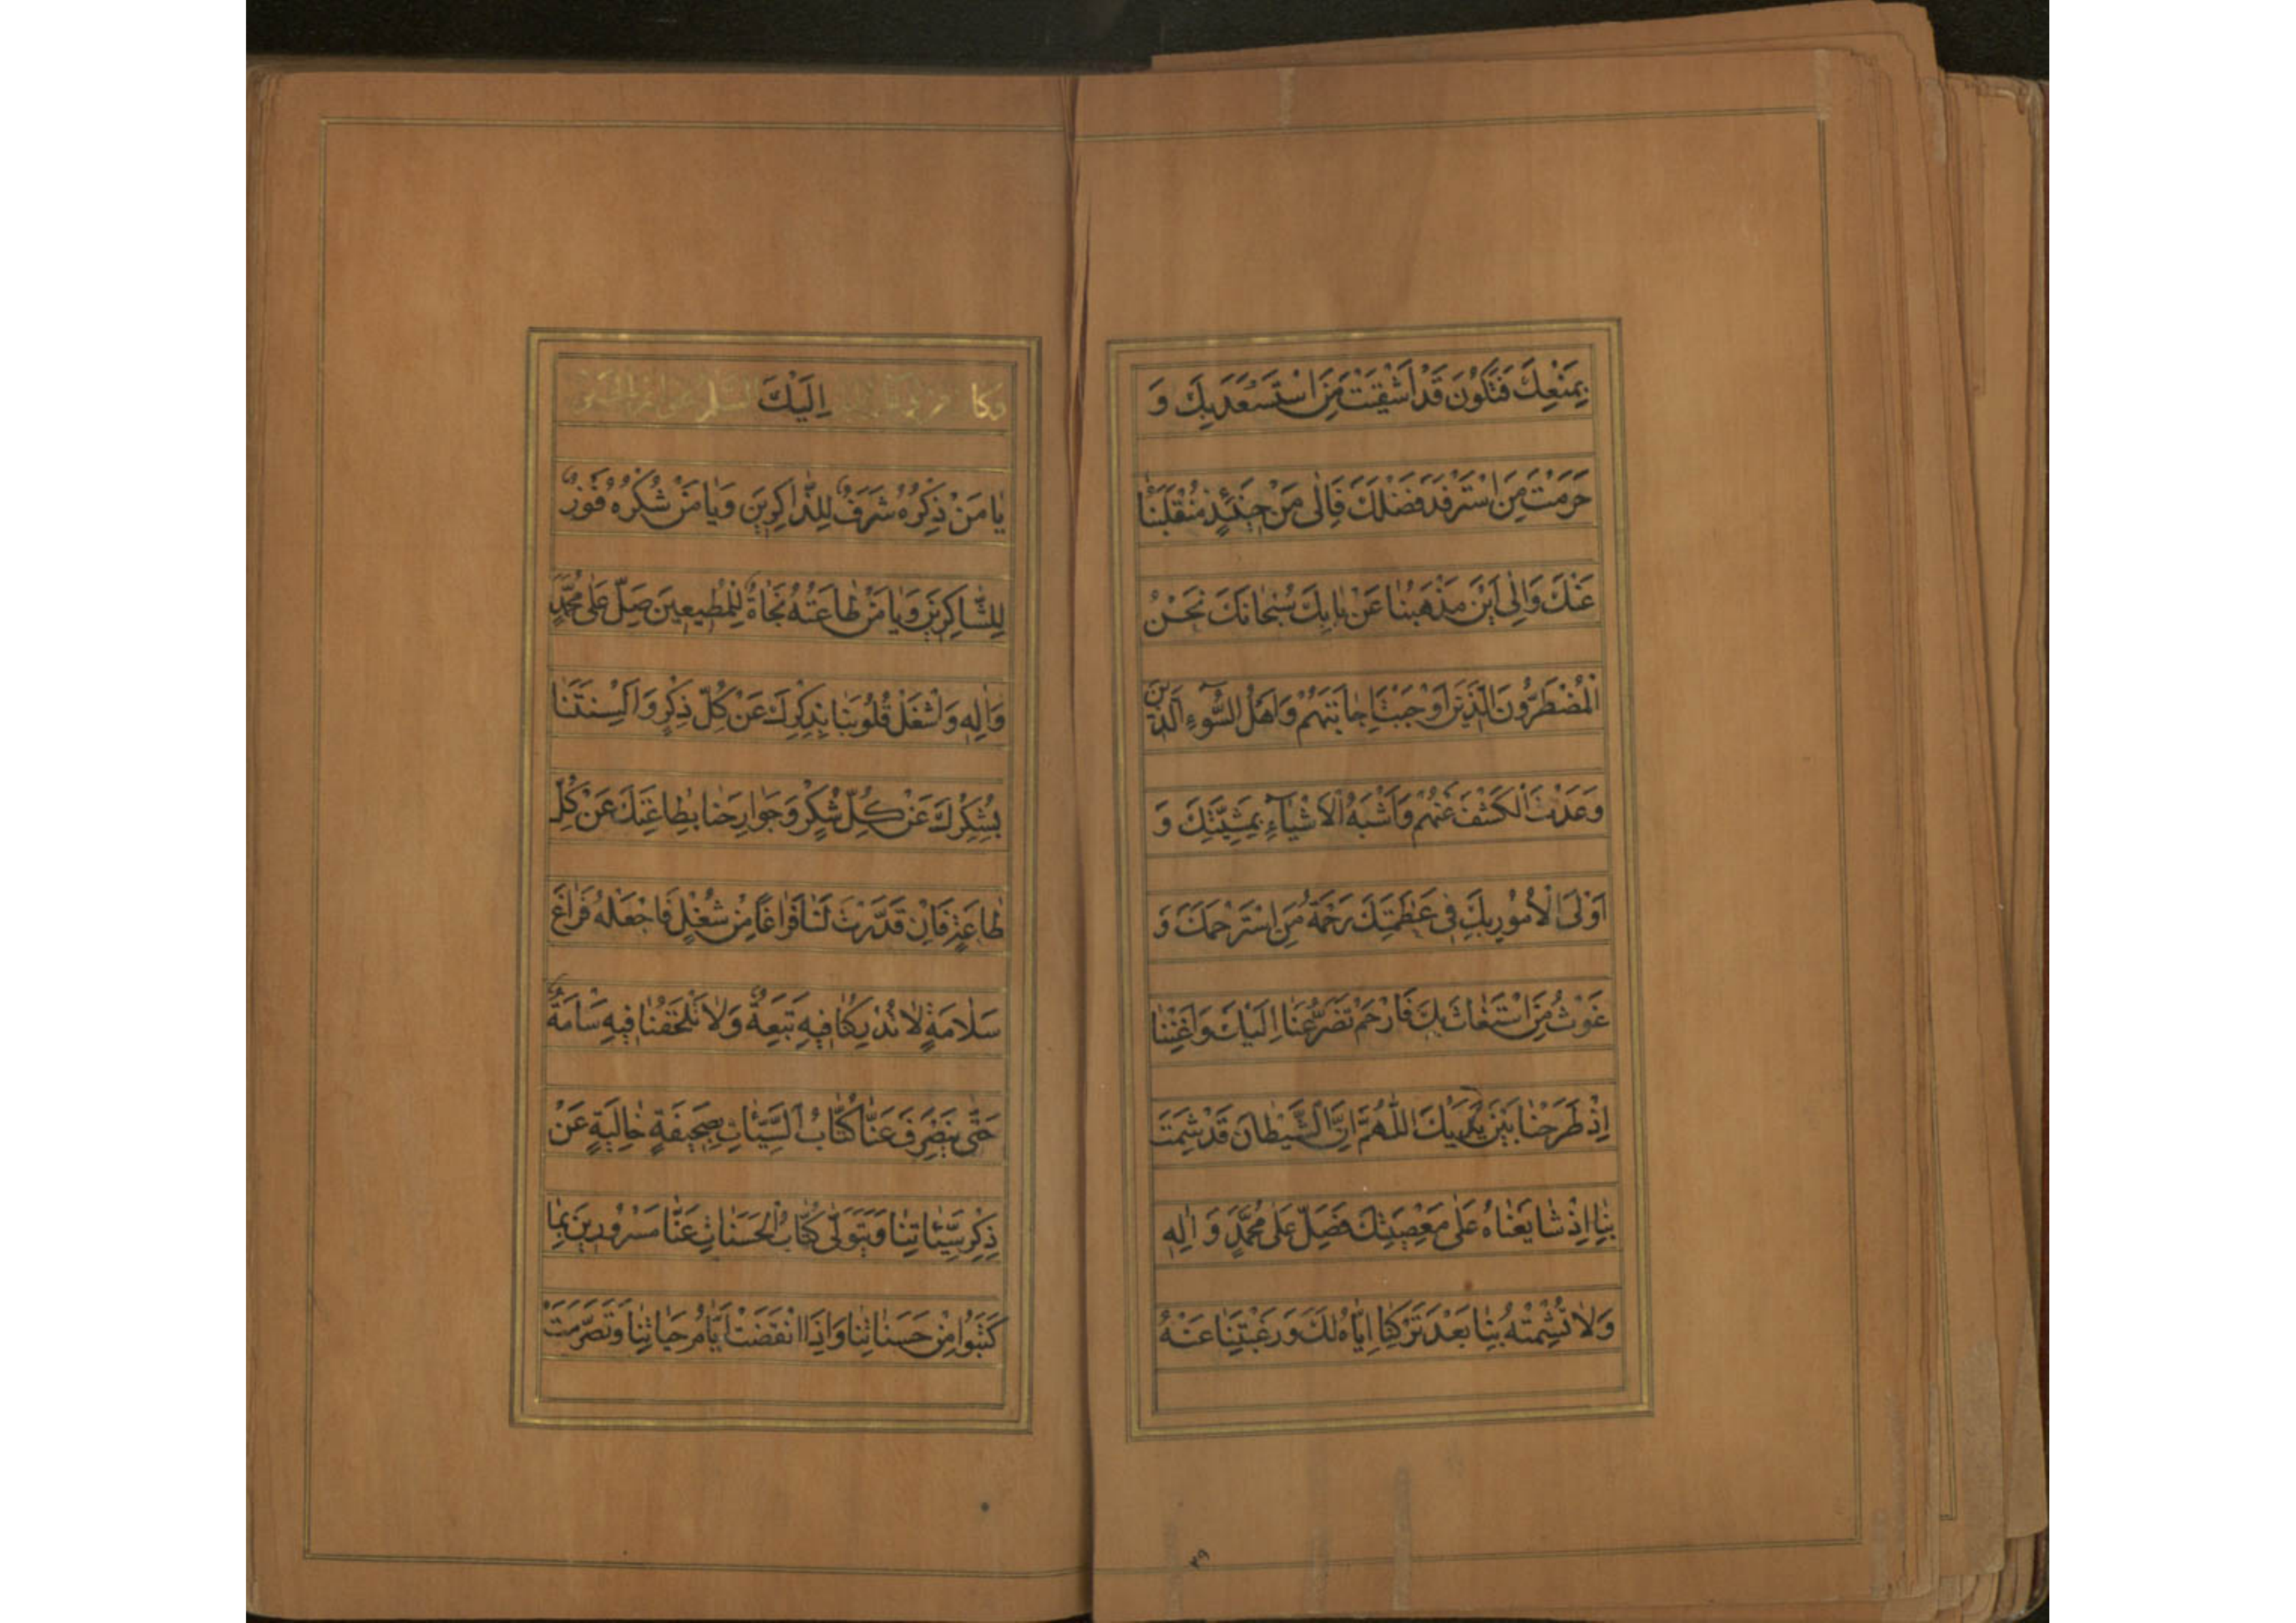 بِمَنْعِكَ فَتَكُونَ قَدْ اَشْقَيْتَ مَنِ اسْتَسْعَدَ بِكَ وَ
حَرَمْتَ مَنِ اسْتَرْفَدَ فَضْلَكَ فَاِلٰى مَنْ حِينَئِذٍ مُنْقَلَبُنَا
عَنْكَ وَاِلٰى اَيْنَ مَذْهَبُنَا عَنْ بَابِكَ سُبْحَانَكَ نَحْنُ
الْمُضْطَرُّونَ الَّذِينَ اَوْجَبْتَ اِجَابَتَهُمْ وَاَهْلُ السُّوۤءِ الَّذِينَ
وَعَدْتَ الْكَشْفَ عَنْهُمْ وَاَشْبَهُ الْاَشْيَاۤءِ بِمَشِيَّتِكَ وَ
اَوْلَى الْاُمُورِ بِكَ فِي عَظَمَتِكَ رَحْمَةُ مَنِ اسْتَرْحَمَكَ وَ
غَوْثُ مَنِ اسْتَغَاثَ بِكَ فَارْحَمْ تَضَرُّعَنَا اِلَيْكَ وَاَغْنِنَا
اِذْ طَرَحْنَا بَيْنَ يَدَيْكَ اللّٰهُمَّ اِنَّ الشَّيْطَانَ قَدْ شَمِتَ
بِنَا اِذْ شَايَعْنَاهُ عَلٰى مَعْصِيَتِكَ فَصَلِّ عَلٰى مُحَمَّدٍ وَ اٰلِهِ
وَلَا تُشْمِتْهُ بِنَا بَعْدَ تَرْكِنَا اِيَّاهُ لَكَ وَرَغْبَتِنَا عَنْهُ
٣٩
اِلَيْكَ
يَا مَنْ ذِكْرُهُ شَرَفٌ لِلذَّاكِرِينَ وَيَا مَنْ شُكْرُهُ فَوْزٌ
لِلشَّاكِرِينَ وَيَا مَنْ طَاعَتُهُ نَجَاةٌ لِلْمُطِيعِينَ صَلِّ عَلٰى مُحَمَّدٍ
وَاٰلِهِ وَاشْغَلْ قُلُوبَنَا بِذِكْرِكَ عَنْ كُلِّ ذِكْرٍ وَاَلْسِنَتَنَا
بِشُكْرِكَ عَنْ كُلِّ شُكْرٍ وَجَوَارِحَنَا بِطَاعَتِكَ عَنْ كُلِّ
طَاعَةٍ فَاِنْ قَدَّرْتَ لَنَا فَرَاغًا مِنْ شُغْلٍ فَاجْعَلْهُ فَرَاغَ
سَلَامَةٍ لَا تُدْرِكُنَا فِيهِ تَبِعَةٌ وَلَا تَلْحَقُنَا فِيهِ سَامَةٌ
حَتّٰى يَنْصَرِفَ عَنَّا كُتَّابُ السَّيِّئَاتِ بِصَحِيفَةٍ خَالِيَةٍ عَنْ
ذِكْرِ سَيِّئَاتِنَا وَيَتَوَلّٰى كُتَّابُ الْحَسَنَاتِ عَنَّا مَسْرُورِينَ بِمَا
كَتَبُوا مِنْ حَسَنَاتِنَا وَاِذَا انْقَضَتْ اَيَّامُ حَيَاتِنَا وَتَصَرَّمَتْ